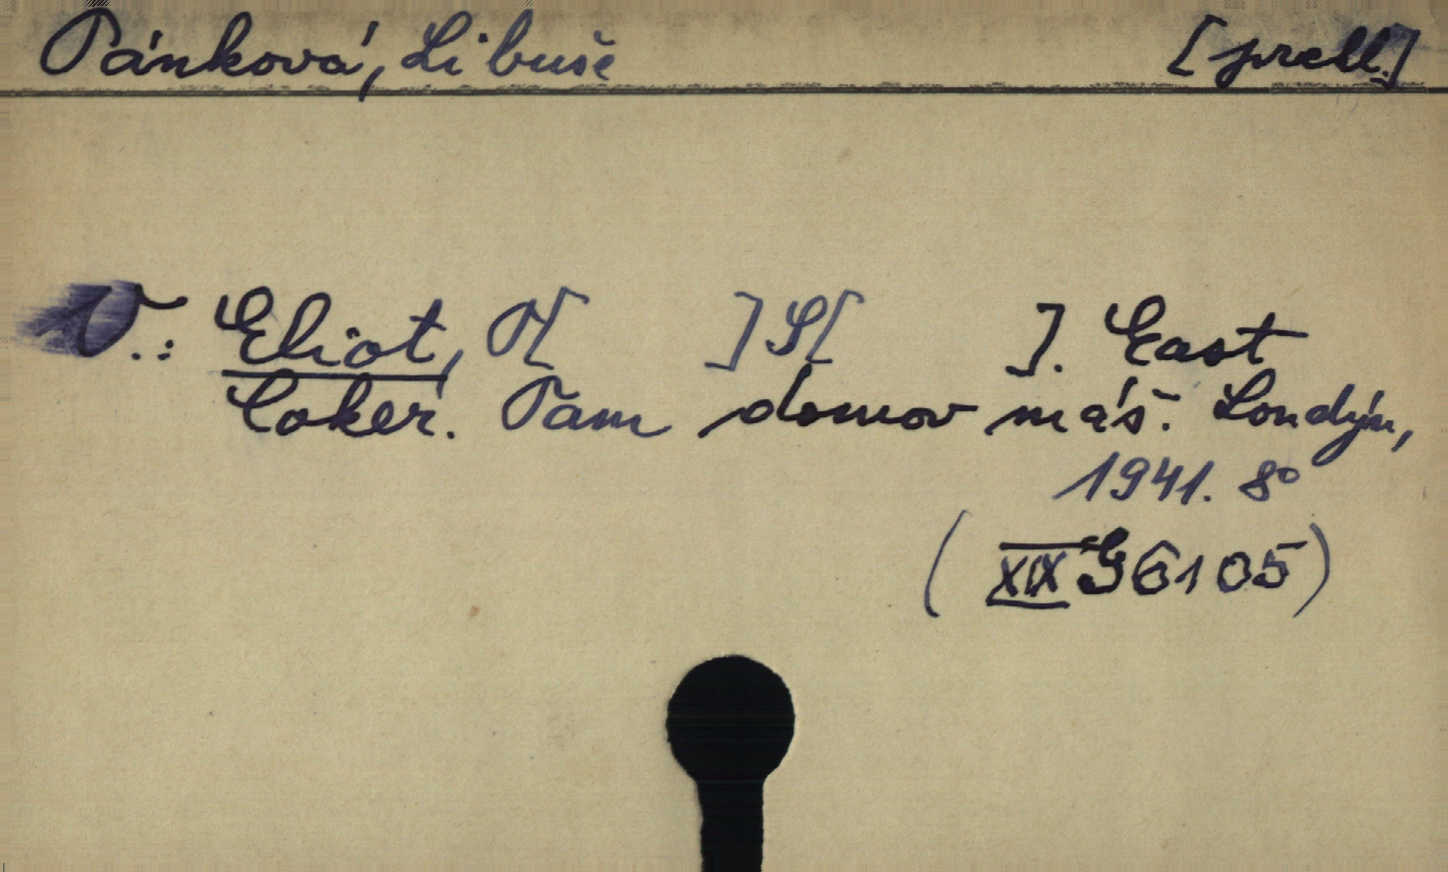 Pánková, Libuše [překl.]
V.: Eliot, T[ ]S[ ]. East
Coker. Tam domov máš. Londýn,
1941. 8°
(XIX G 6105)